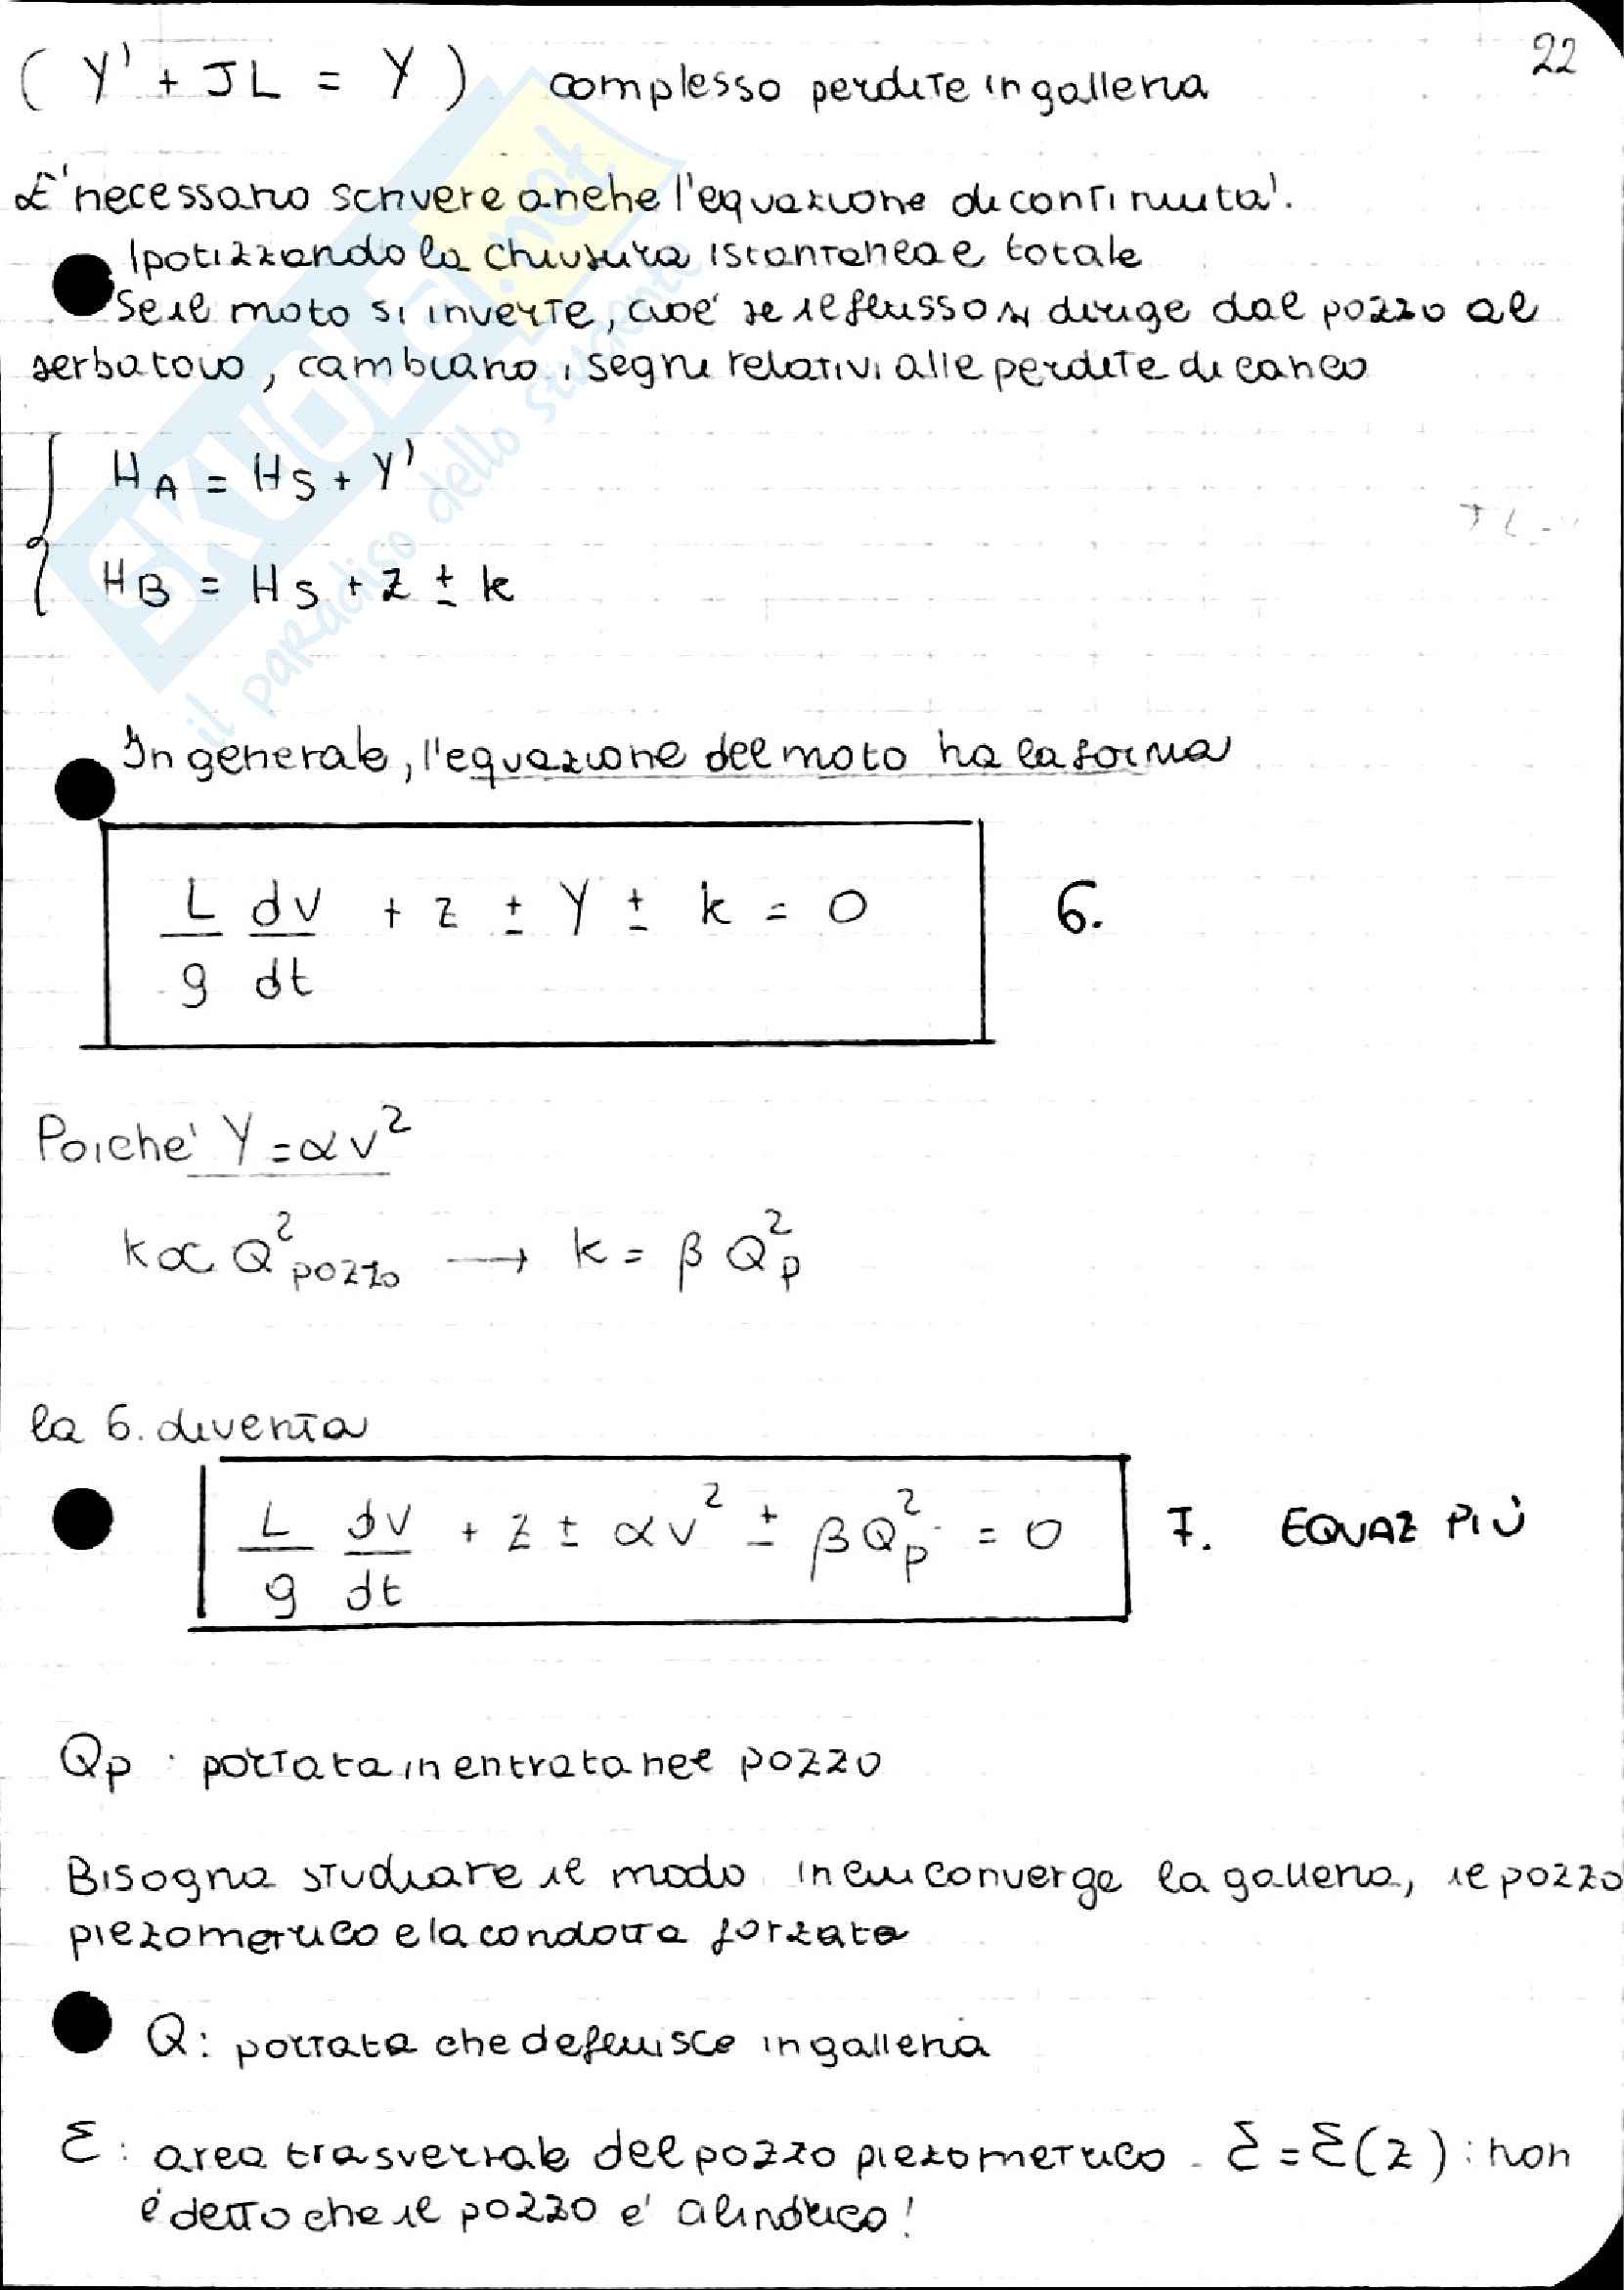 22
( Y' + JL = Y ) complesso perdite in galleria
E' necessario scrivere anche l'equazione di continuita'.
Ipotizzando la chiusura istantanea e totale
Se il moto si inverte, cioe' se il flusso si dirige dal pozzo al
serbatoio, cambiano i segni relativi alle perdite di carico
H_A = H_S + Y'
H_B = H_S + z ± k
In generale, l'equazione del moto ha la forma
L/g dv/dt + z ± Y ± k = 0 6.
Poiche' Y = αv²
k ∝ Q²pozzo → k = β Q_p²
la 6. diventa
L/g dv/dt + z ± αv² ± βQ_p² = 0 7. EQUAZ PIÙ
Qp : portata in entrata nel pozzo
Bisogna studiare il modo in cui converge la galleria, il pozzo
piezometrico e la condotta forzata
Q : portata che defluisce in galleria
Σ : area trasversale del pozzo piezometrico - Σ = Σ(z) : non
e' detto che il pozzo e' cilindrico!
SKUOLA.net
il paradiso dello studente